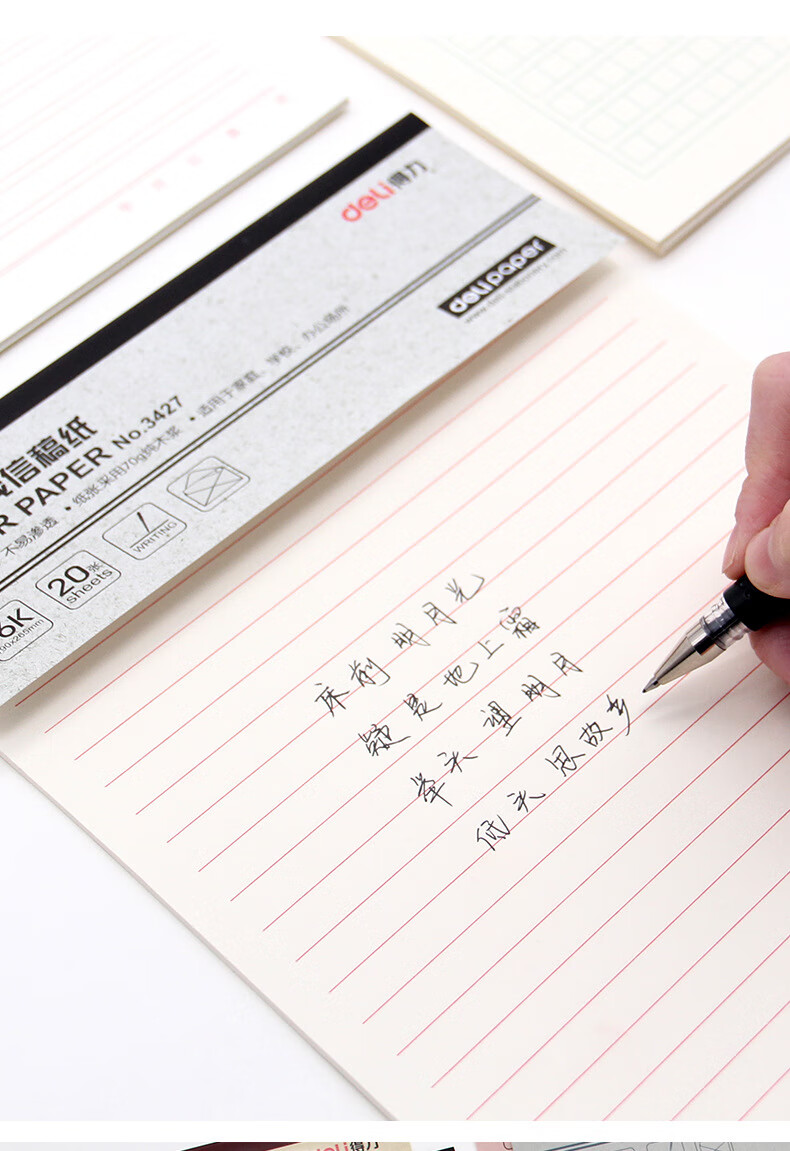 deli得力
deli paper
www.deli-stationery.com
信稿纸
R PAPER No.3427
不易渗透 • 纸张采用70g纯木浆 • 适用于家庭、学校、办公场所
6K
190x265mm
20张
sheets
WRITING
床前明月光
疑是地上霜
举头望明月
低头思故乡
deli得力